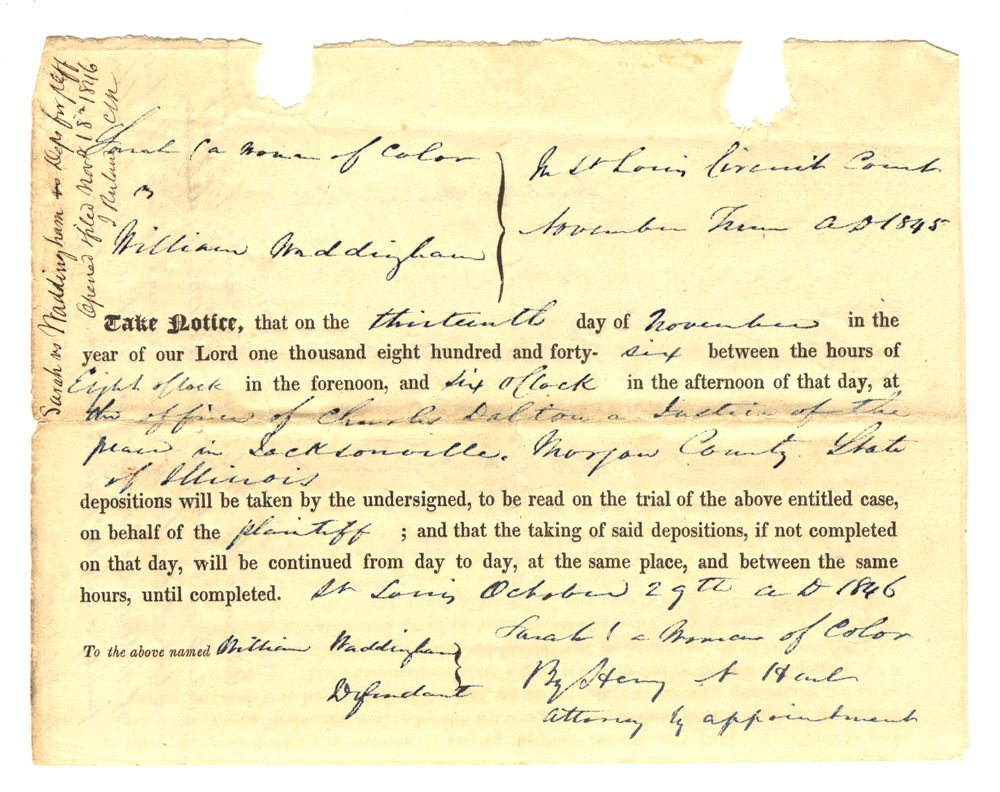 Sarah vs Waddingham Deps for plff
Opened & filed Novr 18th 1846
J Ruland Clk
Sarah (a woman of Color
vs
William Waddingham
In St Louis Circuit Court
November Term A D 1845
Take Notice, that on the thirteenth day of November in the
year of our Lord one thousand eight hundred and forty- six between the hours of
Eight oClock in the forenoon, and six oClock in the afternoon of that day, at
the office of Charles Dalton a Justice of the
peace in Jacksonville, Morgan County State
of Illinois
depositions will be taken by the undersigned, to be read on the trial of the above entitled case,
on behalf of the plaintiff ; and that the taking of said depositions, if not completed
on that day, will be continued from day to day, at the same place, and between the same
hours, until completed. St Louis October 29th A D 1846
Sarah (a Woman of Color
To the above named William Waddingham
Defendant
By Henry A
Attorney by appointment